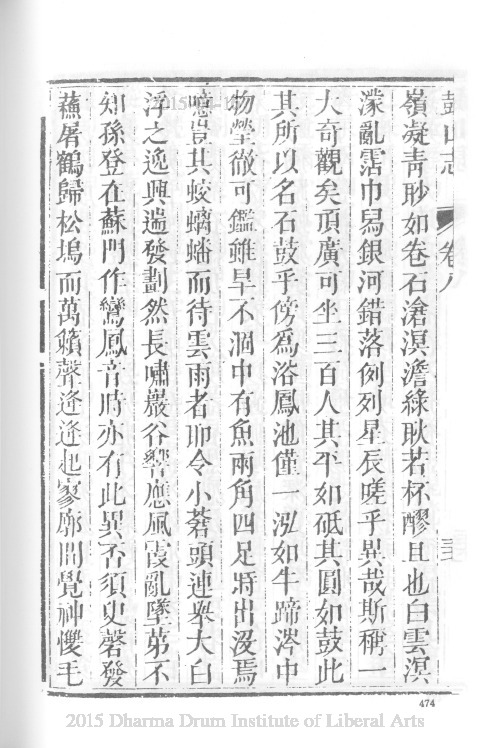 鼓山志 卷八
嶺凝青眇如卷石滄溟澹綠耿若杯醪且也白雲溟
濛亂霑巾舄銀河錯落例列星辰嗟乎異哉斯稱一
大奇觀矣頂廣可坐三百人其平如砥其圓如鼓此
其所以名石鼓乎傍為浴鳳池僅一泓如牛蹄涔中
物瑩徹可鑑雖旱不涸中有魚兩角四足時出沒焉
噫豈其蛟螭蟠而待雲雨者耶令小蒼頭連舉大白
浮之逸興遄發劃然長嘯巖谷響應風霞亂墜第不
知孫登在蘇門作鸞鳳音時亦有此異否須臾磬發
蘸屠鶴歸松塢而萬籟聲逢逢起寥廓間覺神悽毛
474
2015 Dharma Drum Institute of Liberal Arts